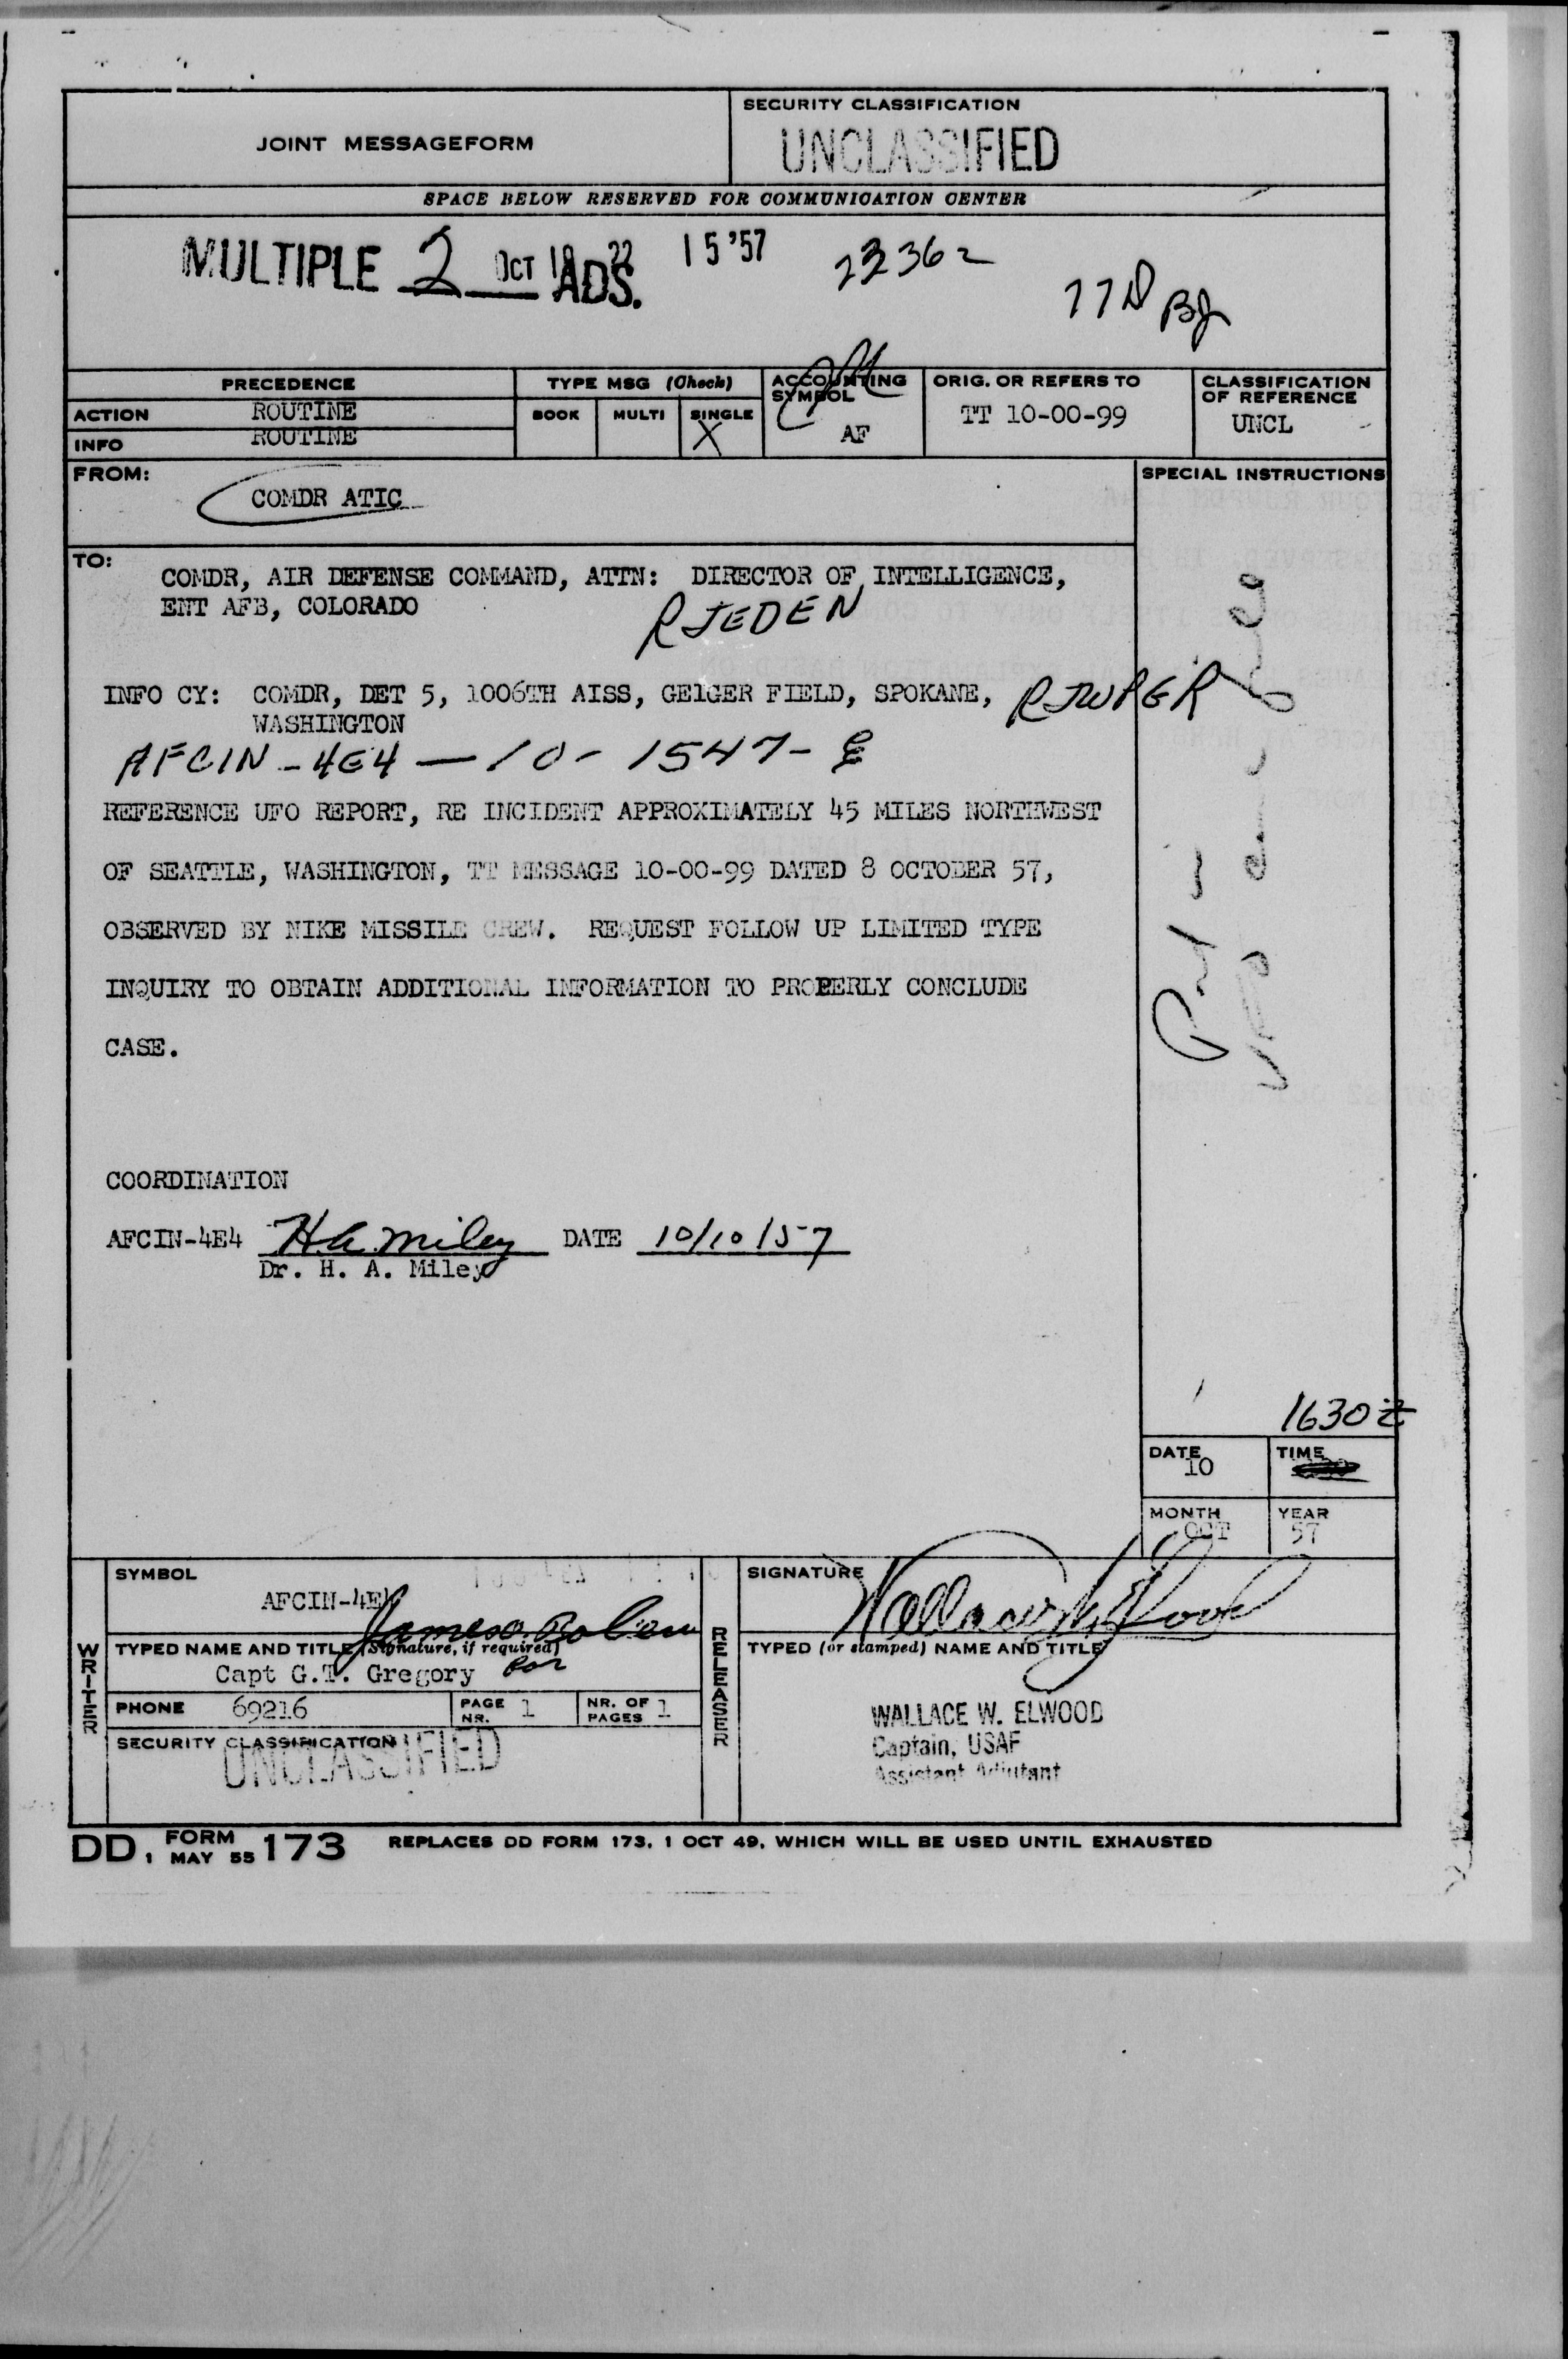 JOINT MESSAGEFORM
SECURITY CLASSIFICATION
UNCLASSIFIED
SPACE BELOW RESERVED FOR COMMUNICATION CENTER
MULTIPLE 2 ADS.
OCT 10 22 15 '57
22362
PRECEDENCE
ACTION ROUTINE
INFO ROUTINE
TYPE MSG (Check)
BOOK MULTI SINGLE
X
ACCOUNTING SYMBOL
AF
ORIG. OR REFERS TO
TT 10-00-99
CLASSIFICATION OF REFERENCE
UNCL
FROM:
COMDR ATIC
SPECIAL INSTRUCTIONS
TO:
COMDR, AIR DEFENSE COMMAND, ATTN: DIRECTOR OF INTELLIGENCE,
ENT AFB, COLORADO
RJEDEN
INFO CY: COMDR, DET 5, 1006TH AISS, GEIGER FIELD, SPOKANE, RJWPGR
WASHINGTON
AFCIN-4E4-10-1547-E
REFERENCE UFO REPORT, RE INCIDENT APPROXIMATELY 45 MILES NORTHWEST
OF SEATTLE, WASHINGTON, TT MESSAGE 10-00-99 DATED 8 OCTOBER 57,
OBSERVED BY NIKE MISSILE CREW. REQUEST FOLLOW UP LIMITED TYPE
INQUIRY TO OBTAIN ADDITIONAL INFORMATION TO PROPERLY CONCLUDE
CASE.
COORDINATION
AFCIN-4E4 H.A. Miley DATE 10/10/57
Dr. H. A. Miley
1630Z
DATE 10
TIME
MONTH OCT
YEAR 57
WRITER
SYMBOL
AFCIN-4E4
TYPED NAME AND TITLE (Signature, if required)
Capt G.T. Gregory for
PHONE 69216
PAGE NR. 1
NR. OF PAGES 1
SECURITY CLASSIFICATION
UNCLASSIFIED
RELEASER
SIGNATURE
Wallace W. Elwood
TYPED (or stamped) NAME AND TITLE
WALLACE W. ELWOOD
Captain, USAF
Assistant Adjutant
DD, FORM 1 MAY 55 173 REPLACES DD FORM 173, 1 OCT 49, WHICH WILL BE USED UNTIL EXHAUSTED